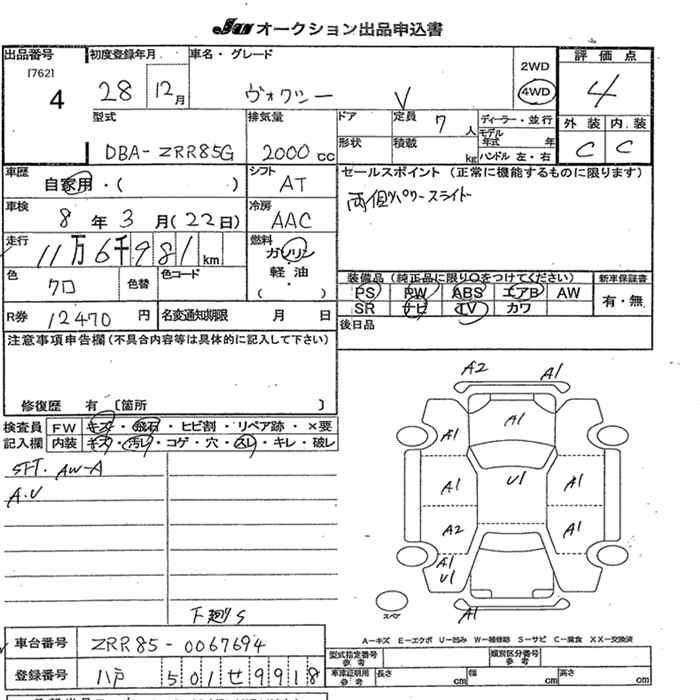 JAA オークション出品申込書
出品番号 初度登録年月 車名・グレード 評価点
[762]
4 28 12月 ヴォクシー V 2WD 4WD 4
型式 排気量 ドア 定員 7人 ディーラー・並行 外装 内装
形状 積載 kg モデル年式 年 ハンドル 左・右
DBA-ZRR85G 2000cc C C
車歴 自家用・( ) シフト AT セールスポイント (正常に機能するものに限ります)
車検 8年3月(22日) 冷房 AAC 両側パワースライド
走行 11万6千981km 燃料 ガソリン 軽・油 ( ・ )
色 クロ 色替 色コード
装備品(純正品に限り○をつけてください) 新車保証書
PS PW ABS エアB AW 有・無
SR ナビ TV カワ
R券 12470円 名変通知期限 月 日 後日品
注意事項申告欄(不具合内容等は具体的に記入して下さい)
修復歴 有 〔箇所 〕
検査員 FW キズ・飛石・ヒビ割・リペア跡・×要
記入欄 内装 キズ・汚レ・コゲ・穴・スレ・キレ・破レ
SFT. AW-A
A.U
下廻りS
A2 A1
A1 A1
U1
A1 A1
A2 A1
A1
U1
A1
スペア
A-キズ E-エクボ U-凹み W-補修跡 S-サビ C-腐食 XX-交換済
車台番号 ZRR85-0067694
登録番号 八戸 501 せ 9918
型式指定番号 参考 類別区分番号 参考
車庫証明用 参考 長さ cm 幅 cm 高さ cm